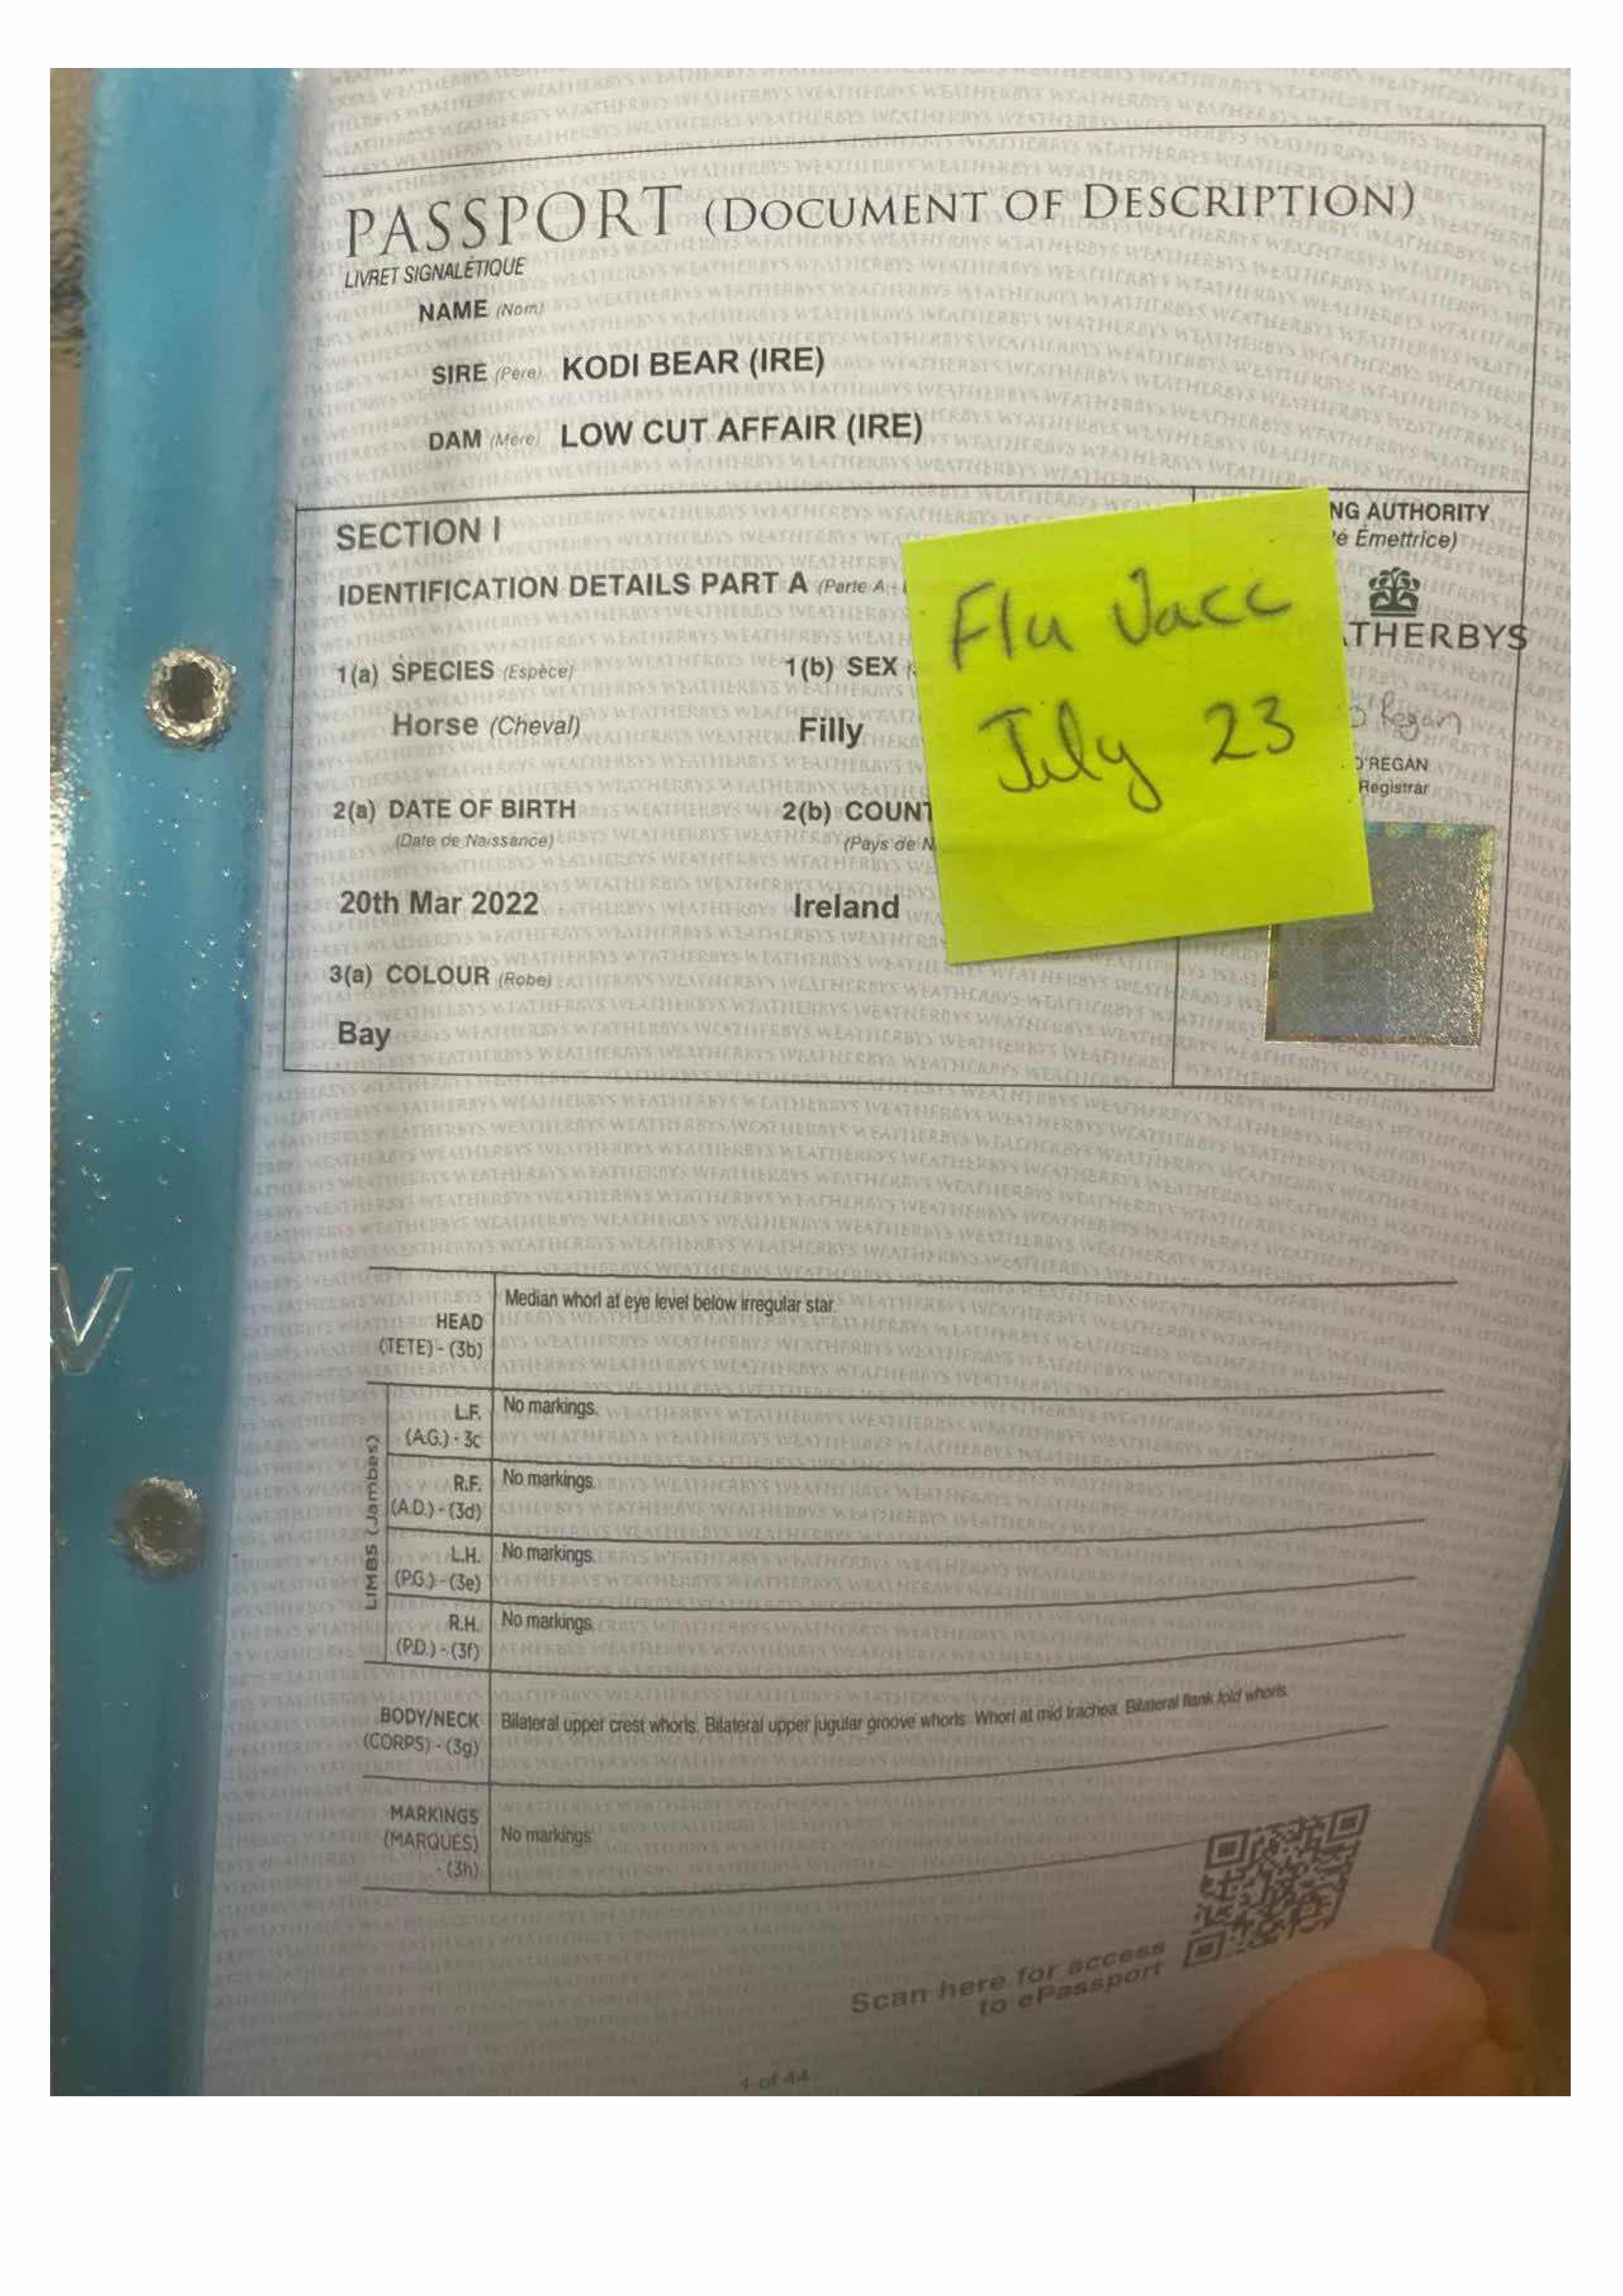 PASSPORT (DOCUMENT OF DESCRIPTION)
LIVRET SIGNALÉTIQUE
NAME (Nom)
SIRE (Père) KODI BEAR (IRE)
DAM (Mère) LOW CUT AFFAIR (IRE)
SECTION I
IDENTIFICATION DETAILS PART A (Parte A -
NG AUTHORITY
té Émettrice)
THERBYS
1(a) SPECIES (Espèce) 1(b) SEX
Horse (Cheval) Filly
O'REGAN
Registrar
2(a) DATE OF BIRTH 2(b) COUNT
(Date de Naissance) (Pays de N
20th Mar 2022 Ireland
3(a) COLOUR (Robe)
Bay
Flu Vacc
July 23
HEAD
(TETE) - (3b)
Median whorl at eye level below irregular star.
LIMBS (Jambes)
L.F. No markings.
(A.G.) - 3c
R.F. No markings.
(A.D.) - (3d)
L.H. No markings.
(P.G.) - (3e)
R.H. No markings.
(P.D.) - (3f)
BODY/NECK
(CORPS) - (3g)
Bilateral upper crest whorls. Bilateral upper jugular groove whorls. Whorl at mid trachea. Bilateral flank fold whorls.
MARKINGS
(MARQUES)
- (3h)
No markings.
Scan here for access
to ePassport
1 of 44
V